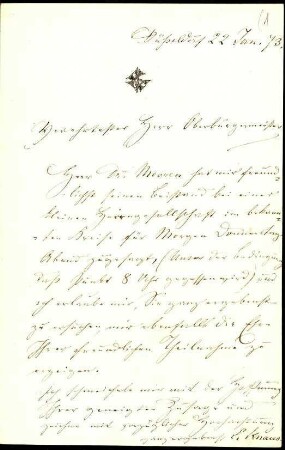 Düsseldorf 22 Jan. 73.
Verehrtester Herr Oberbürgermeister
Herr Dr. Mooren hat mir freund-
lichst seinen Beistand bei einer
kleinen Herrengesellschaft im bekann-
ten Kreise für Morgen Donnerstag
Abend zugesagt, (Unter der Bedingung
daß Punkt 8 Uhr gegessen wird) und
ich erlaube mir, Sie ganz ergebenst
zu ersuchen mir ebenfalls die Ehre
Ihrer freundlichen Theilnahme zu
erzeigen.
Ich schmeichele mir mit der Hoffnung
Ihrer geneigten Zusage und
zeichne mit vorzüglicher Hochachtung
ganz ergebenst L. Knaus